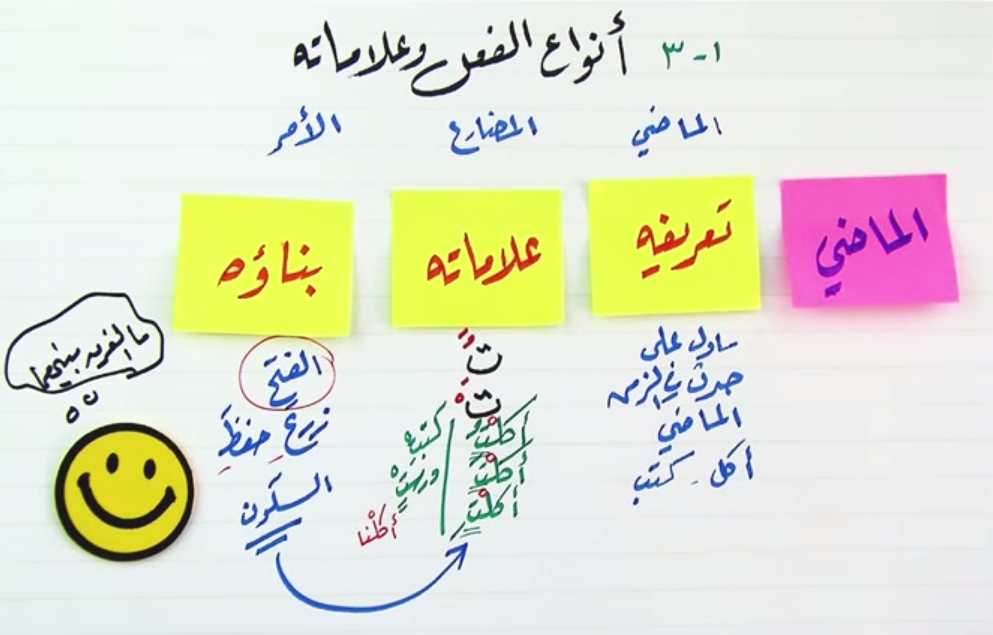 ١-٣ أنواع الفعل وعلاماته
الماضي المضارع الأمر
الماضي تعريفه علاماته بناؤه
مادل على
حدث في الزمن
الماضي
أكل - كتب
تُ
تْ
أكلتُ
أكلتَ
أكلتِ
كتبتْ
درستْ
أكلْنا
الفتح
زرعَ حفظَ
السكون
ما الفرق بينهما